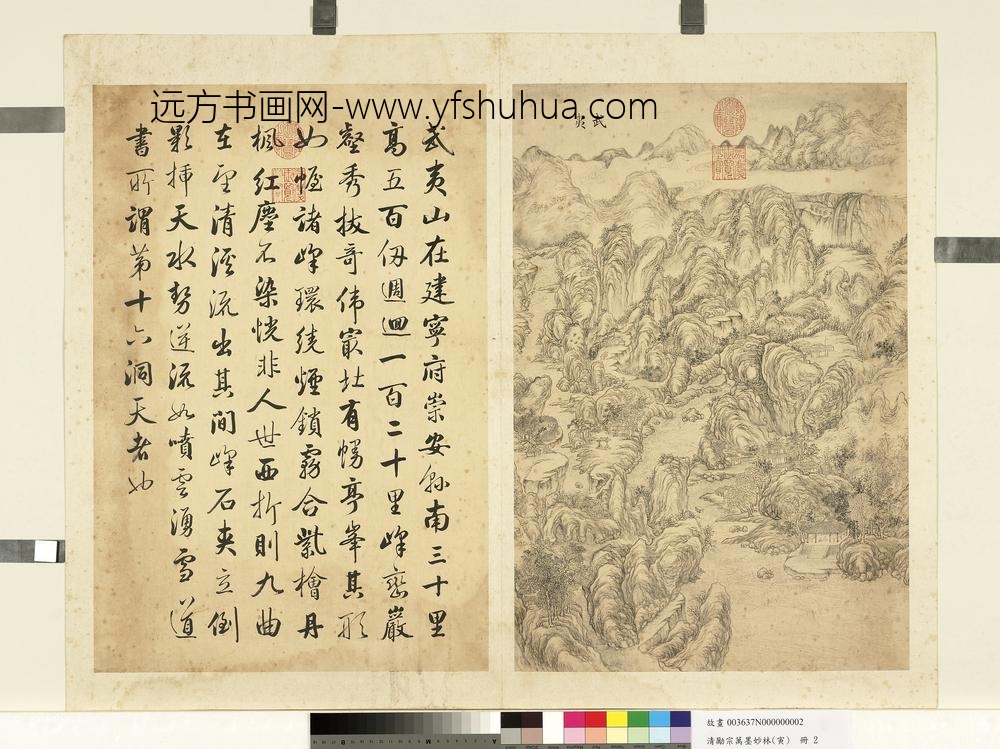 远方书画网-www.yfshuhua.com
武夷
武夷山在建寧府崇安縣南三十里
高五百仞週迴一百二十里峰巒巖
壑秀拔奇偉冣北有幔亭峯其形
如幄諸峰環繞煙鎖霧合紫檜丹
楓紅塵不染恍非人世西折則九曲
在焉清溪流出其間峰石夾立倒
影揷天水勢逆流如噴雲湧雪道
書所謂第十六洞天者也
故畫 003637N000000002
清勵宗萬墨妙林(寅) 冊 2